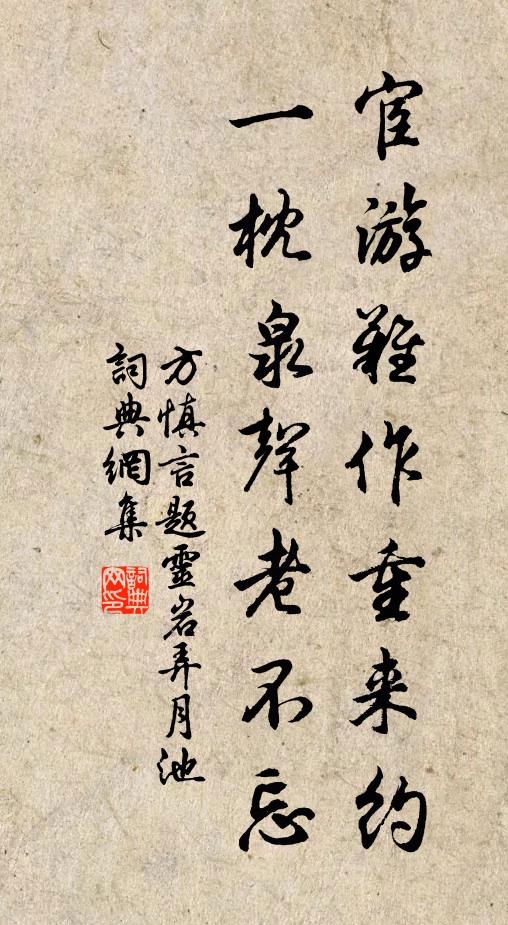 宦游難作重来約
一枕泉聲老不忘
方慎言题靈岩弄月池
詞典網集
詞典網印